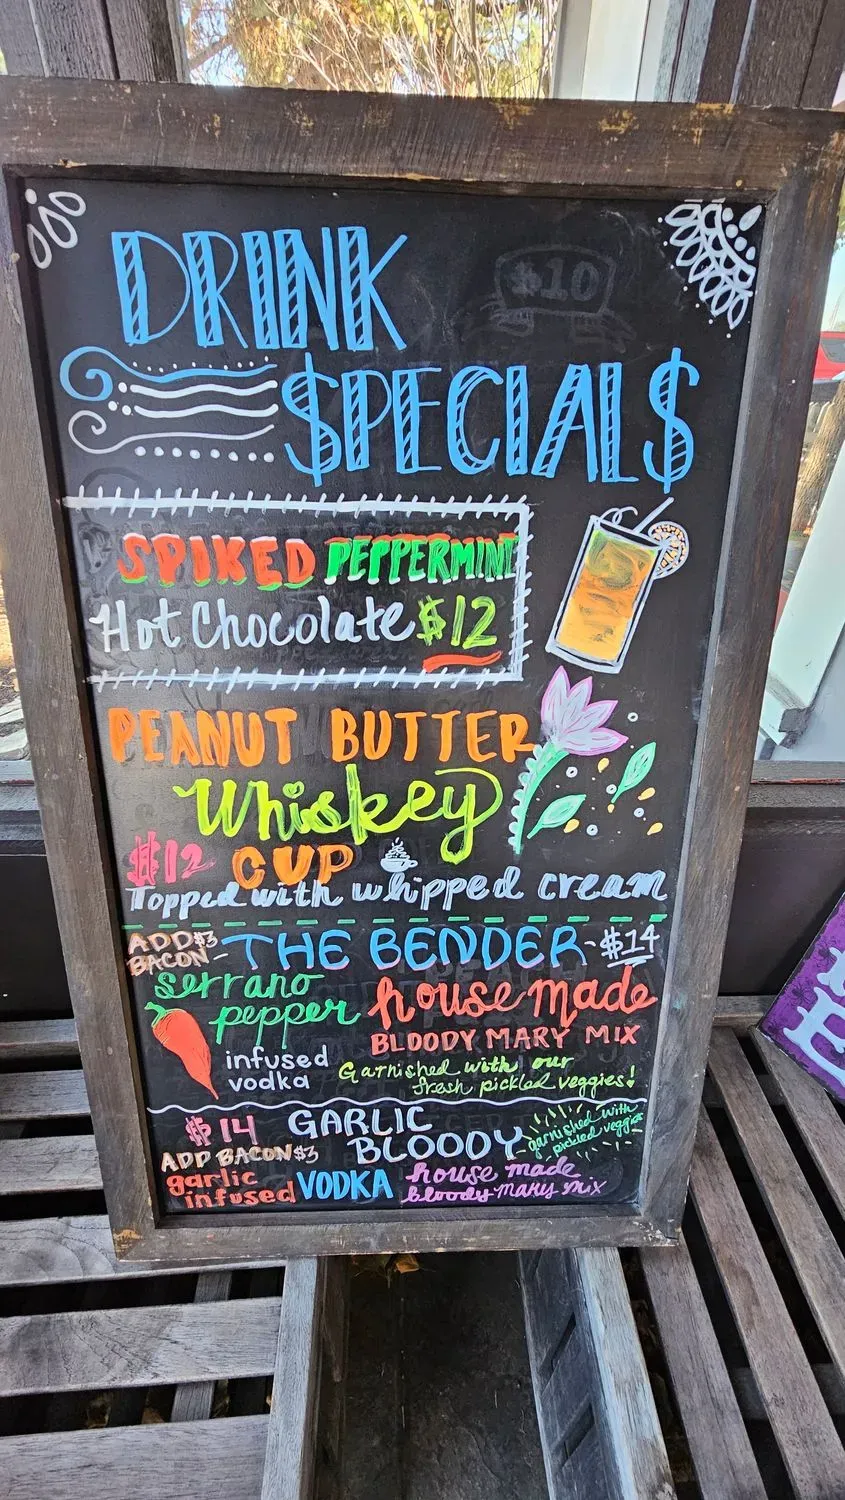 $10
DRINK
$PECIAL$
SPIKED PEPPERMINT
Hot Chocolate $12
PEANUT BUTTER
Whiskey
$12 CUP
Topped with whipped cream
ADD $3
BACON - THE BENDER - $14
serrano
pepper
infused
vodka
house made
BLOODY MARY MIX
Garnished with our
fresh pickled veggies!
$14 GARLIC
BLOODY
ADD BACON $3
garnished with
pickled veggies
garlic
infused VODKA
house made
bloody mary mix
E